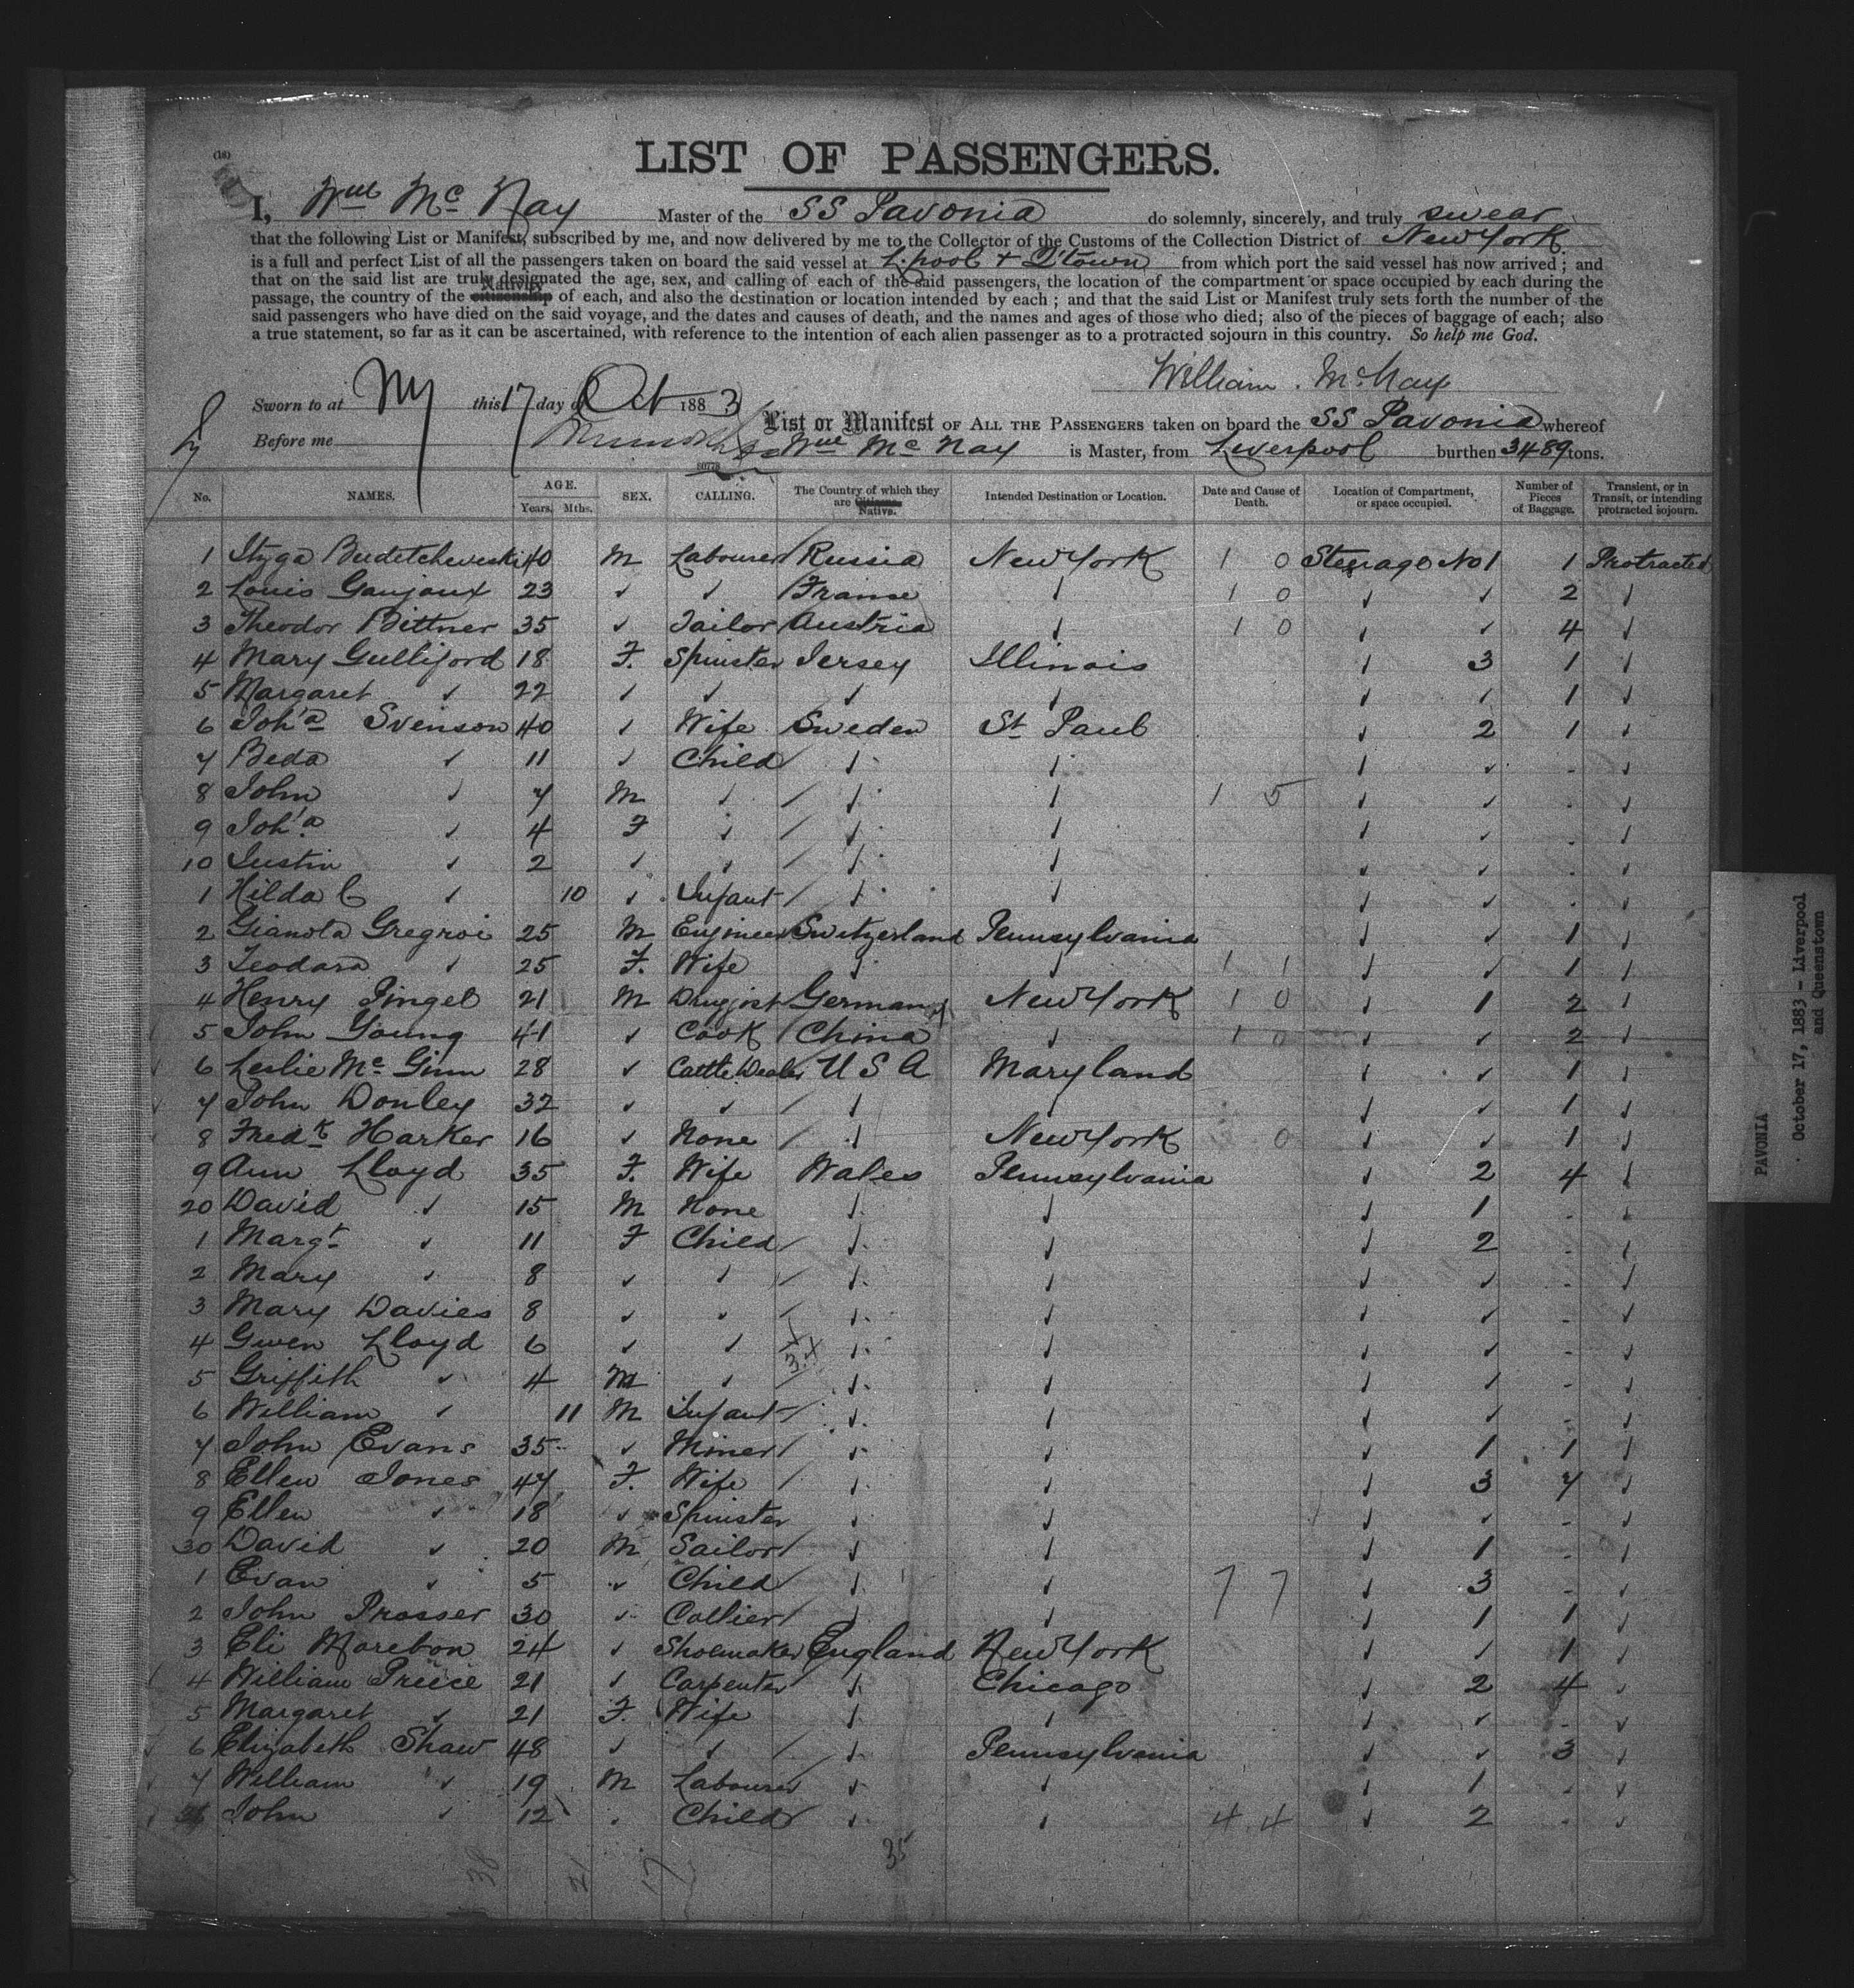 (18)
LIST OF PASSENGERS.
I, Wm Mc Kay Master of the SS Pavonia do solemnly, sincerely, and truly swear
that the following List or Manifest, subscribed by me, and now delivered by me to the Collector of the Customs of the Collection District of New York
is a full and perfect List of all the passengers taken on board the said vessel at L.pool + Q'town from which port the said vessel has now arrived; and
that on the said list are truly designated the age, sex, and calling of each of the said passengers, the location of the compartment or space occupied by each during the
Nativity
passage, the country of the citizenship of each, and also the destination or location intended by each; and that the said List or Manifest truly sets forth the number of the
said passengers who have died on the said voyage, and the dates and causes of death, and the names and ages of those who died; also of the pieces of baggage of each; also
a true statement, so far as it can be ascertained, with reference to the intention of each alien passenger as to a protracted sojourn in this country. So help me God.
William McKay
Sworn to at NY this 17 day of Oct 1883
List or Manifest OF ALL THE PASSENGERS taken on board the SS Pavonia whereof
Before me
Wm Mc Kay is Master, from Liverpool burthen 3489 tons.
No. NAMES. AGE. Years. Mths. SEX. CALLING. The Country of which they are Citizens. Native. Intended Destination or Location. Date and Cause of Death. Location of Compartment, or space occupied. Number of Pieces of Baggage. Transient, or in Transit, or intending protracted sojourn.
1 Budetcheweski 40 M Labourer Russia New York 1 0 Steerage No 1 1 Protracted
2 Louis Gaujoux 23 ✓ ✓ Franse ✓ 1 0 ✓ ✓ 2 ✓
3 Theodor Bittner 35 ✓ Tailor Austria ✓ 1 0 ✓ ✓ 4 ✓
4 Mary Gulliford 18 F. Spinster Jersey Illinois ✓ 3 1 ✓
5 Margaret ✓ 22 ✓ ✓ ✓ ✓ ✓ ✓ 1 ✓
6 Joh'a Svenson 40 ✓ Wife Sweden St Paul ✓ 2 1 ✓
7 Beda ✓ 11 ✓ Child ✓ ✓ ✓ ✓ - ✓
8 John ✓ 7 M ✓ ✓ ✓ 1 5 ✓ ✓ - ✓
9 Joh'a ✓ 4 F ✓ ✓ ✓ ✓ ✓ - ✓
10 Justin ✓ 2 ✓ ✓ ✓ ✓ ✓ ✓ - ✓
1 Hilda C ✓ 10 ✓ Infant ✓ ✓ ✓ ✓ - ✓
2 Gianota Gregroi 25 M Engineer Switzerland Pennsylvania ✓ ✓ 1 ✓
3 Teodara ✓ 25 F. Wife ✓ ✓ 1 1 ✓ ✓ 1 ✓
4 Henry Pingel 21 M Druggist Germany New York 1 0 ✓ 1 2 ✓
5 John Young 41 ✓ Cook China ✓ 1 0 ✓ ✓ 2 ✓
6 Leslie Mc Ginn 28 ✓ Cattle Dealer U S A Maryland ✓ ✓ 1 ✓
7 John Donley 32 ✓ ✓ ✓ ✓ ✓ ✓ 1 ✓
8 Fredk Harker 16 ✓ None ✓ New York 0 ✓ ✓ 1 ✓
9 Ann Lloyd 35 F. Wife Wales Pennsylvania ✓ 2 4 ✓
20 David ✓ 15 M None ✓ ✓ ✓ 1 - ✓
1 Margt ✓ 11 F Child ✓ ✓ ✓ 2 - ✓
2 Mary ✓ 8 ✓ ✓ ✓ ✓ ✓ ✓ - ✓
3 Mary Davies 8 ✓ ✓ ✓ ✓ ✓ ✓ - ✓
4 Gwen Lloyd 6 ✓ ✓ ✓ ✓ ✓ ✓ - ✓
5 Griffith ✓ 4 M ✓ ✓ ✓ ✓ ✓ - ✓
6 William ✓ 11 M Infant ✓ ✓ ✓ ✓ - ✓
7 John Evans 35 ✓ Miner ✓ ✓ ✓ 1 1 ✓
8 Ellen Jones 47 F. Wife ✓ ✓ ✓ 3 7 ✓
9 Ellen ✓ 18 ✓ Spinster ✓ ✓ ✓ ✓ - ✓
30 David ✓ 20 M Sailor ✓ ✓ ✓ 1 - ✓
1 Evan ✓ 5 ✓ Child ✓ ✓ 7 7 ✓ 3 - ✓
2 John Prosser 30 ✓ Collier ✓ ✓ ✓ 1 1 ✓
3 Eli Morebon 24 ✓ Shoemaker England New York ✓ ✓ 1 ✓
4 William Preece 21 ✓ Carpenter ✓ Chicago ✓ 2 4 ✓
5 Margaret ✓ 21 F. Wife ✓ ✓ ✓ ✓ - ✓
6 Elizabeth Shaw 48 ✓ ✓ ✓ Pennsylvania ✓ ✓ 3 ✓
7 William ✓ 19 M Labourer ✓ ✓ ✓ 1 - ✓
John ✓ 12 ✓ Child ✓ ✓ 4 4 ✓ 2 - ✓
38 21 17 35
PAVONIA
October 17, 1883 - Liverpool
and Queenstown